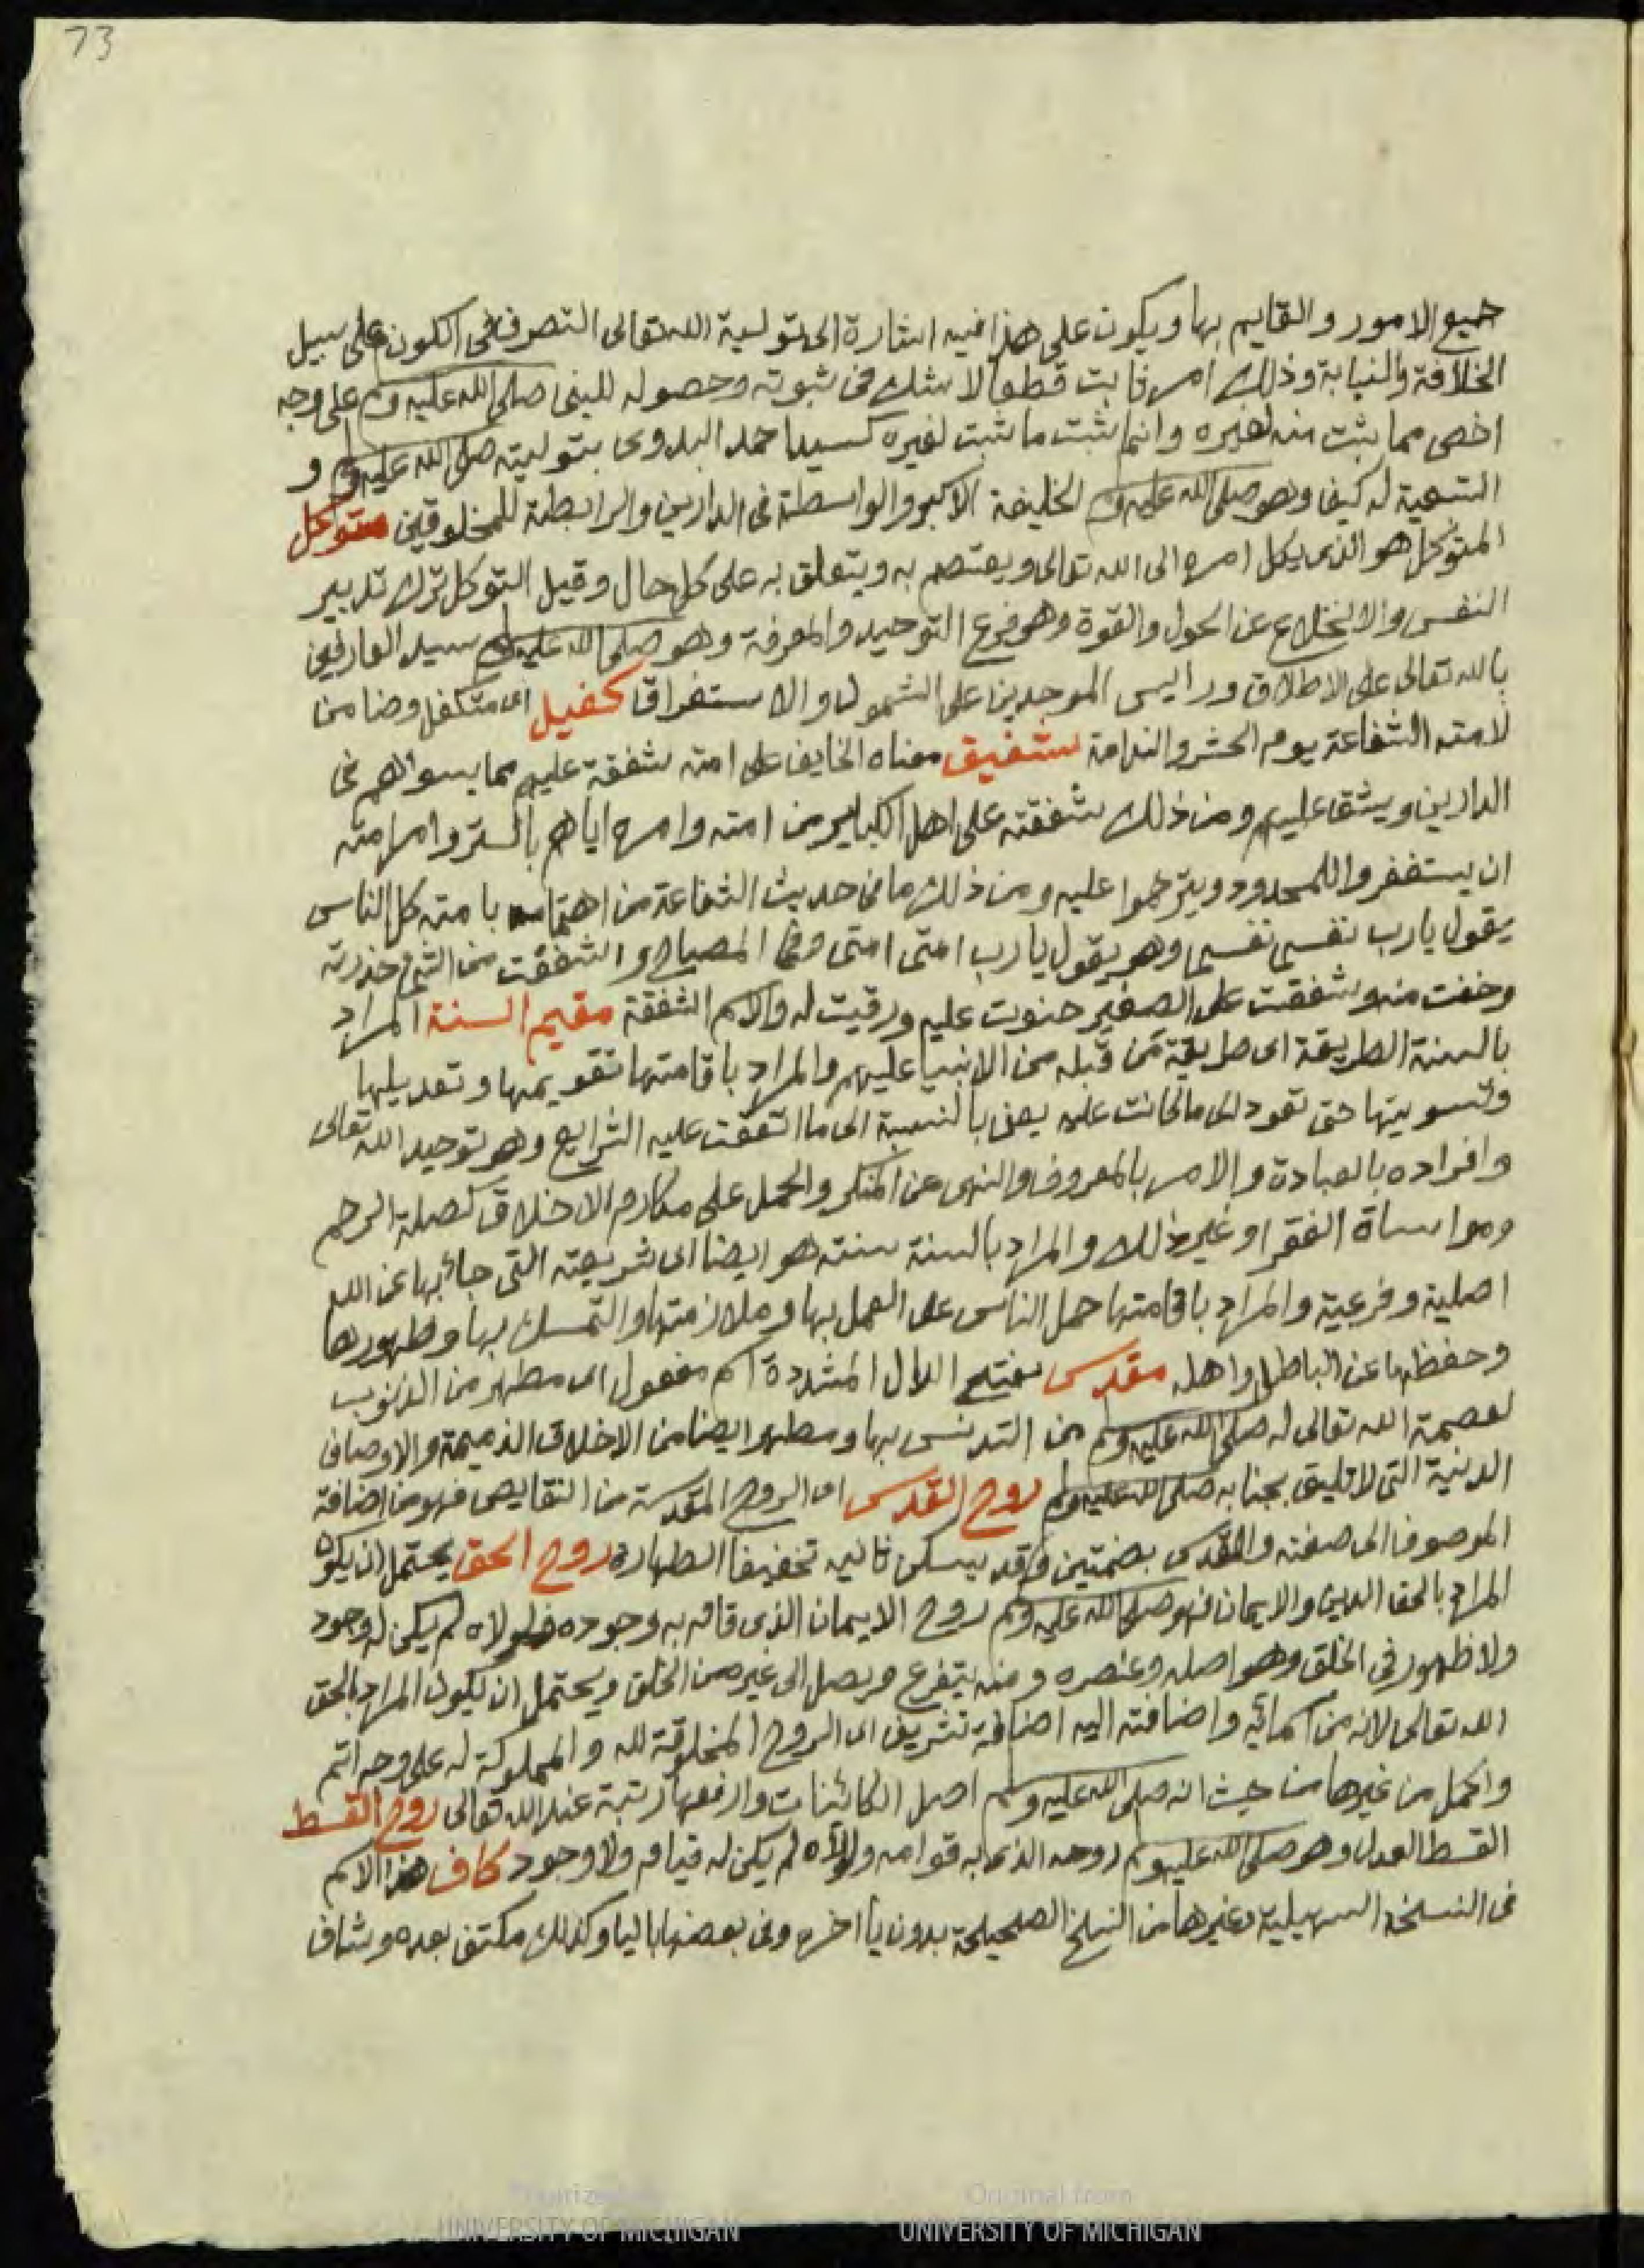 73
جميع الامور والقايم بها ويكون على هذا فيه اشارة الى تولية الله تعالى التصرف في الكون على سبيل
الخلافة والنيابة وذلك امر ثابت قطعا لا شك في ثبوته وحصوله للنبي صلى الله عليه وسلم على وجه
اخص مما يثبت منه لغيره وانما يثبت ما ثبت لغيره كسيد احمد البدوى بتوليته صلى الله عليه وسلم و
التسمية له كيف وهو صلى الله عليه وسلم الخليفة الاكبر والواسطة فى الدارين والرابطة للمخلوقين متوكل
المتوكل هو الذى يكل امره الى الله تعالى ويعتصم به ويتعلق به على كل حال وقيل التوكل ترك تدبير
النفس والانخلاع عن الحول والقوة وهو فرع التوحيد والمعرفة وهو صلى الله عليه وسلم سيد العارفين
بالله تعالى على الاطلاق ورايس الموحدين على الشمول والاستغراق كفيل اى متكفل وضامن
لامته الشفاعة يوم الحشر والندامة شفيق معناه الخايف على امته شفقة عليهم مما يسوالهم فى
الدارين ويشق عليهم ومن ذلك شفقته على اهل الكباير من امته وامره اياهم بالستر وامر امته
ان يستغفروا للمحدود ويترحموا عليه ومن ذلك ما فى حديث الشفاعة من اهتمامه بامته كل الناس
يقول يارب نفسى نفسى وهو يقول يارب امتى امتى وفى المصباح واشفقت من الشئ حذرته
وخفت منه وشفقت على الصغير حنوت عليه ورقيت له والاسم الشفقة مقيم السنة المراد
بالسنة الطريقة اى طريقة من قبله من الانبيا عليهم والمراد باقامتها تقويمها وتعديلها
وتسويتها حتى تعود الى ما كانت عليه يعنى بالنسبة الى ما اتفقت عليه الشرايع وهو توحيد الله تعالى
وافراده بالعبادة والامر بالمعروف والنهى عن المنكر والحمل على مكارم الاخلاق كصلة الرحم
ومواساة الفقرا وغير ذلك والمراد بالسنة سنته هو ايضا اى شريعته التى جا بها عن الله
اصلية وفرعية والمراد باقامتها حمل الناس على العمل بها وملازمتها والتمسك بها وظهورها
وحفظها عن الباطل واهله مقدس بفتح الدال المشددة اسم مفعول اى مطهر من الذنوب
لعصمة الله تعالى له صلى الله عليه وسلم من التدنس بها ومطهر ايضا من الاخلاق الذميمة والاوصاف
الدنية التى لا تليق بجنابه صلى الله عليه وسلم روح القدس اى الروح المقدسة من النقايص فهو من اضافة
الموصوف الى صفته والقدس بضمتين وقد يسكن ثانيه تخفيفا الطهارة روح الحق يحتمل ان يكون
المراد بالحق الدين والايمان فهو صلى الله عليه وسلم روح الايمان الذى قام به وجوده فلولاه لم يكن له وجود
ولا ظهور فى الخلق وهو اصله وعنصره ومنه يتفرع ويصل الى غيره من الخلق ويحتمل ان يكون المراد بالحق
الله تعالى لانه من اسمائه واضافته اليه اضافة تشريف اى الروح المخلوقة لله والمملوكة له على وجه اتم
واكمل من غيرها من حيث انه صلى الله عليه وسلم اصل الكائنات وارفعها رتبة عند الله تعالى روح القسط
القسط العدل وهو صلى الله عليه وسلم روحه الذى به قوامه ولولاه لم يكن له قيام ولا وجود كاف هذا الاسم
فى النسخة السهيلية وغيرها من النسخ الصحيحة بدون يا اخره وفى بعضها باليا وكذلك مكتف بعده وشاف
UNIVERSITY OF MICHIGAN
Original from
UNIVERSITY OF MICHIGAN